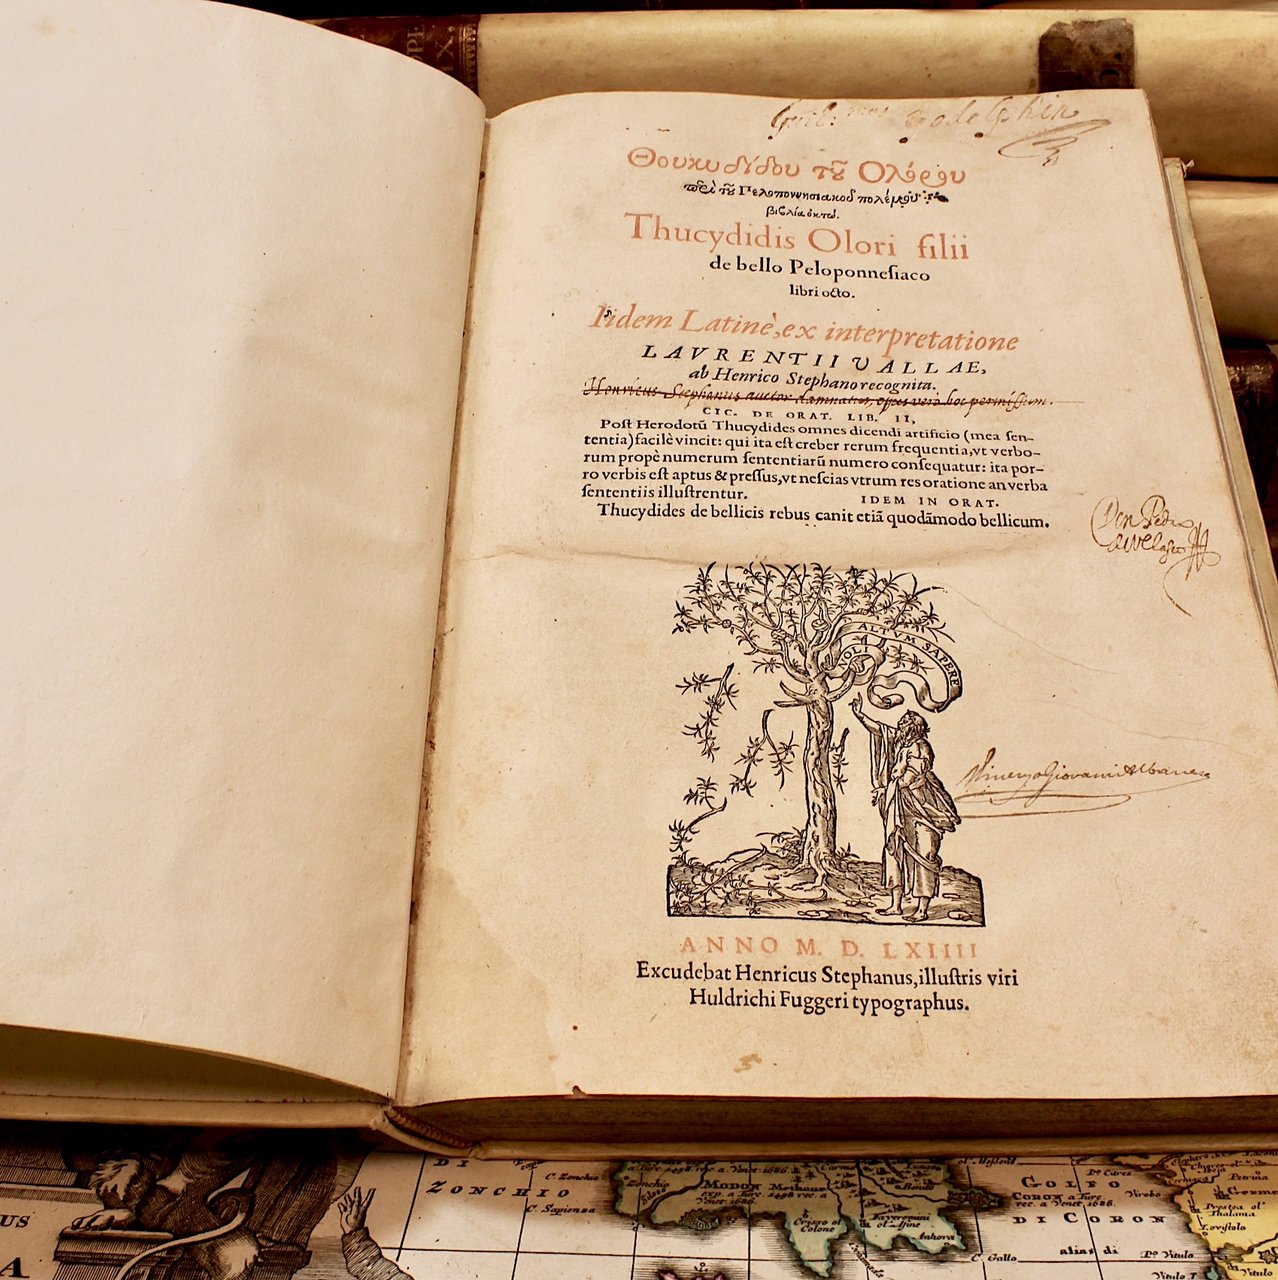 Θουκυδίδου τοῦ Ολόρου
περὶ τοῦ Πελοποννησιακοῦ πολέμου
βιβλία ὀκτώ.
Thucydidis Olori filii
de bello Peloponneſiaco
libri octo.
Iidem Latinè, ex interpretatione
LAVRENTII VALLAE,
ab Henrico Stephano recognita.
Henricus Stephanus auctor damnatus, opus verò hoc permiſſum.
CIC. DE ORAT. LIB. II,
Poſt Herodotū Thucydides omnes dicendi artificio (mea ſen-
tentia) facilè vincit: qui ita eſt creber rerum frequentia, vt verbo-
rum propè numerum ſententiarū numero conſequatur: ita por-
ro verbis eſt aptus & preſſus, vt neſcias vtrum res oratione an verba
ſententiis illuſtrentur. IDEM IN ORAT.
Thucydides de bellicis rebus canit etiā quodāmodo bellicum.
Don Pedro
de Velasco
NOLI ALTVM SAPERE
Giovanni Albanese
ANNO M. D. LXIIII
Excudebat Henricus Stephanus, illuſtris viri
Huldrichi Fuggeri typographus.
DI
ZONCHIO
C. Zonchio
C. Sapienza
Zonchio
a Turc. 1498. rec. a Venet. 1686.
MODON Methone
exp. a Turc. 1498 rec. a
Venet 1686.
Crisso el
Colone
C. Gallo
GOLFO
CORON a Turc.
rec. a Venet 1685.
DI CORON
alias di
Pº Vitulo
Vitulo